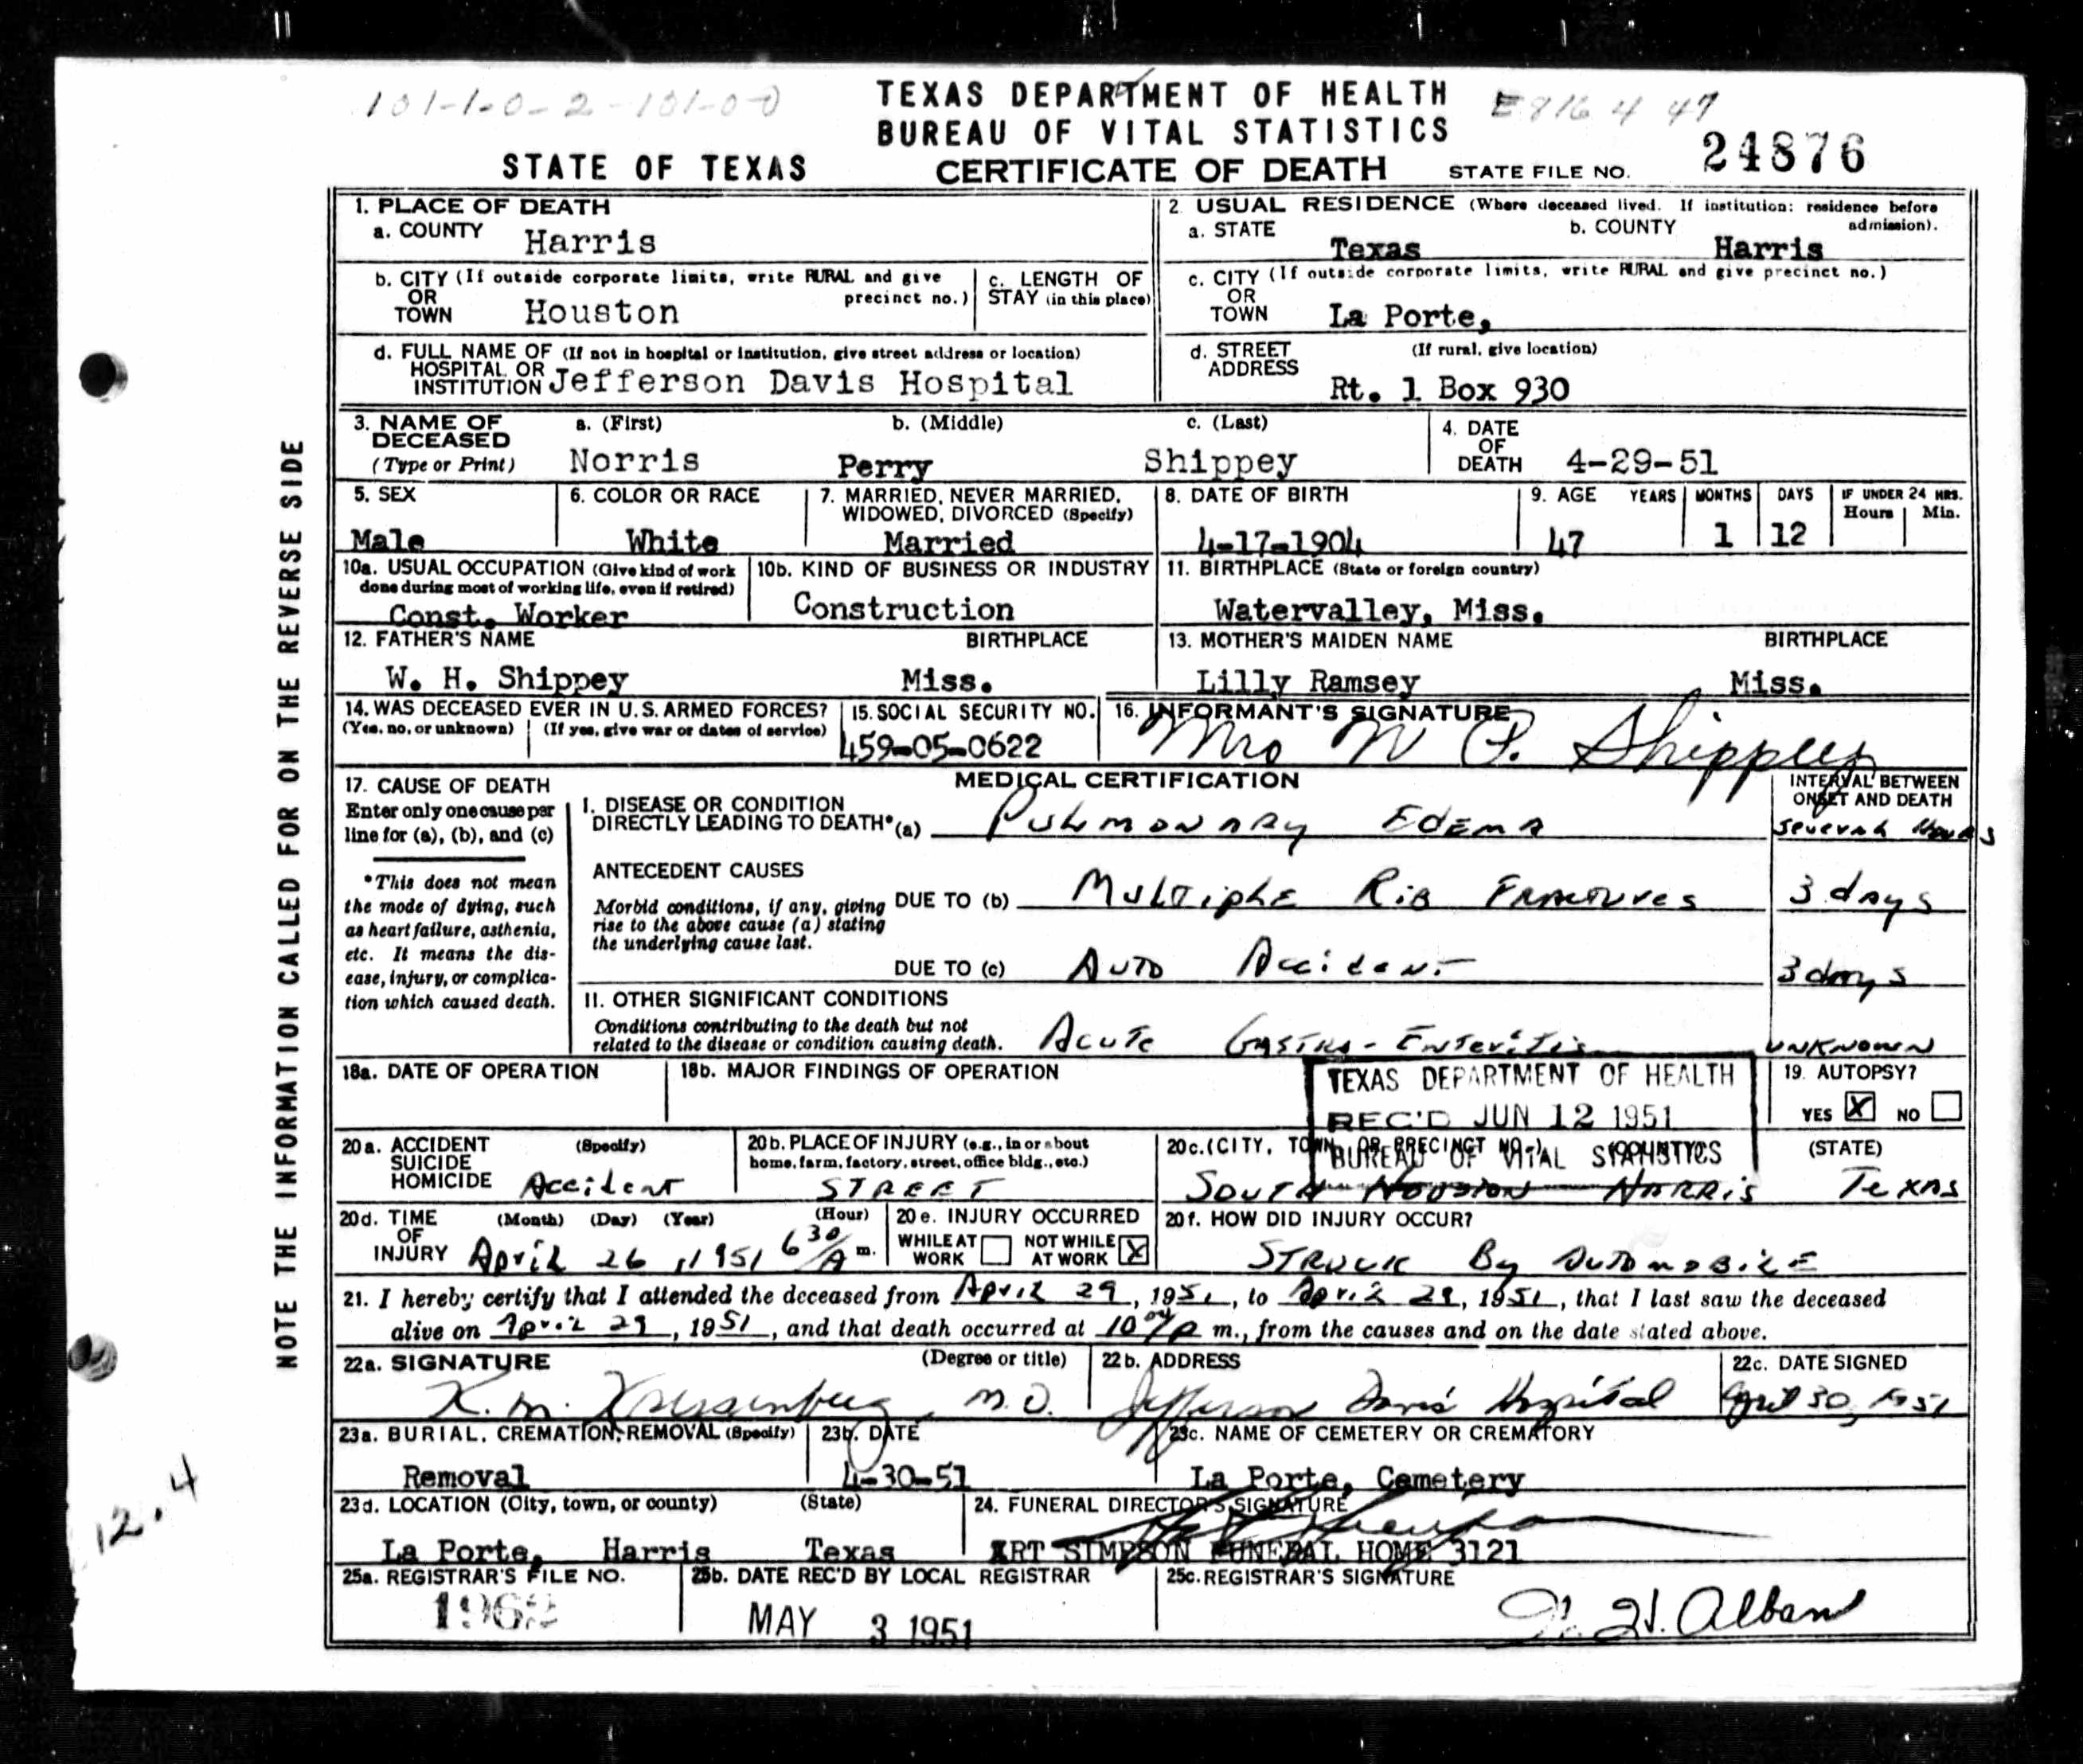 101-1-0-2-101-0-0
TEXAS DEPARTMENT OF HEALTH
E816 4 47
BUREAU OF VITAL STATISTICS
STATE OF TEXAS CERTIFICATE OF DEATH STATE FILE NO. 24876
NOTE THE INFORMATION CALLED FOR ON THE REVERSE SIDE
1. PLACE OF DEATH
a. COUNTY Harris
2. USUAL RESIDENCE (Where deceased lived. If institution: residence before admission).
a. STATE Texas b. COUNTY Harris
b. CITY (If outside corporate limits, write RURAL and give precinct no.)
OR
TOWN Houston
c. LENGTH OF
STAY (in this place)
c. CITY (If outside corporate limits, write RURAL and give precinct no.)
OR
TOWN La Porte,
d. FULL NAME OF (If not in hospital or institution, give street address or location)
HOSPITAL OR
INSTITUTION Jefferson Davis Hospital
d. STREET (If rural, give location)
ADDRESS Rt. 1 Box 930
3. NAME OF DECEASED
(Type or Print)
a. (First) b. (Middle) c. (Last)
Norris Perry Shippey
4. DATE
OF
DEATH 4-29-51
5. SEX
Male
6. COLOR OR RACE
White
7. MARRIED, NEVER MARRIED,
WIDOWED, DIVORCED (Specify)
Married
8. DATE OF BIRTH
4-17-1904
9. AGE YEARS MONTHS DAYS IF UNDER 24 HRS.
Hours Min.
47 1 12
10a. USUAL OCCUPATION (Give kind of work
done during most of working life, even if retired)
Const. Worker
10b. KIND OF BUSINESS OR INDUSTRY
Construction
11. BIRTHPLACE (State or foreign country)
Watervalley, Miss.
12. FATHER'S NAME BIRTHPLACE
W. H. Shippey Miss.
13. MOTHER'S MAIDEN NAME BIRTHPLACE
Lilly Ramsey Miss.
14. WAS DECEASED EVER IN U.S. ARMED FORCES?
(Yes, no, or unknown) (If yes, give war or dates of service)
15. SOCIAL SECURITY NO.
459-05-0622
16. INFORMANT'S SIGNATURE
Mrs N P. Shippey
17. CAUSE OF DEATH
Enter only one cause per
line for (a), (b), and (c)
*This does not mean
the mode of dying, such
as heart failure, asthenia,
etc. It means the dis-
ease, injury, or complica-
tion which caused death.
MEDICAL CERTIFICATION
INTERVAL BETWEEN
ONSET AND DEATH
I. DISEASE OR CONDITION
DIRECTLY LEADING TO DEATH* (a) Pulmonary Edema Several Hours
ANTECEDENT CAUSES
Morbid conditions, if any, giving
rise to the above cause (a) stating
the underlying cause last.
DUE TO (b) Multiple Rib Fractures 3 days
DUE TO (c) Auto Accident 3 days
II. OTHER SIGNIFICANT CONDITIONS
Conditions contributing to the death but not
related to the disease or condition causing death.
Acute Gastro-Enteritis unknown
18a. DATE OF OPERATION
18b. MAJOR FINDINGS OF OPERATION
TEXAS DEPARTMENT OF HEALTH
REC'D JUN 12 1951
BUREAU OF VITAL STATISTICS
19. AUTOPSY?
YES X NO
20a. ACCIDENT (Specify)
SUICIDE
HOMICIDE Accident
20b. PLACE OF INJURY (e.g., in or about
home, farm, factory, street, office bldg., etc.)
STREET
20c. (CITY, TOWN, OR PRECINCT NO.) (COUNTY) (STATE)
South Houston Harris Texas
20d. TIME (Month) (Day) (Year) (Hour)
OF
INJURY April 26, 1951 6 30/A m.
20e. INJURY OCCURRED
WHILE AT WORK
NOT WHILE AT WORK X
20f. HOW DID INJURY OCCUR?
Struck By Automobile
21. I hereby certify that I attended the deceased from April 29, 1951, to April 29, 1951, that I last saw the deceased
alive on April 29, 1951, and that death occurred at 10 00/P m., from the causes and on the date stated above.
22a. SIGNATURE (Degree or title)
K. M. M.D.
22b. ADDRESS
Jefferson Davis Hospital
22c. DATE SIGNED
April 30, 1951
23a. BURIAL, CREMATION, REMOVAL (Specify)
Removal
23b. DATE
4-30-51
23c. NAME OF CEMETERY OR CREMATORY
La Porte, Cemetery
23d. LOCATION (City, town, or county) (State)
La Porte, Harris Texas
24. FUNERAL DIRECTOR'S SIGNATURE
ART SIMPSON FUNERAL HOME 3121
25a. REGISTRAR'S FILE NO.
1962
25b. DATE REC'D BY LOCAL REGISTRAR
MAY 3 1951
25c. REGISTRAR'S SIGNATURE
H. Alban
12.4